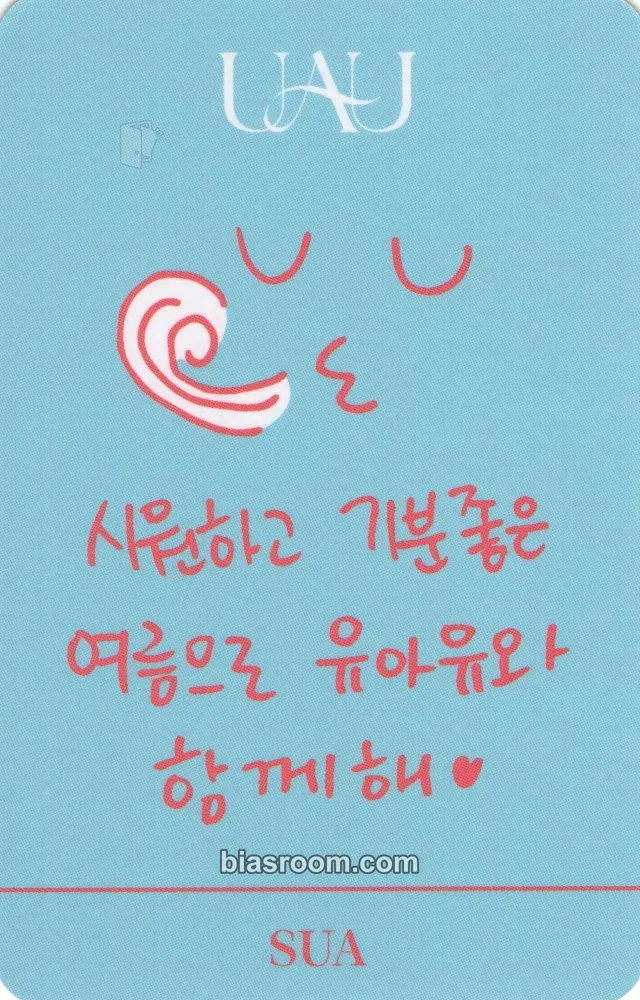 UAU
시원하고 기분좋은
여름으로 유아유와
함께해♥
biasroom.com
SUA